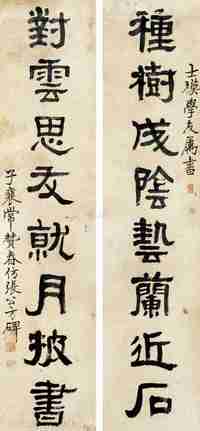 種樹成陰藝蘭近石
士瑛學友屬書
對雲思友就月披書
子襄常贊春仿張公方碑